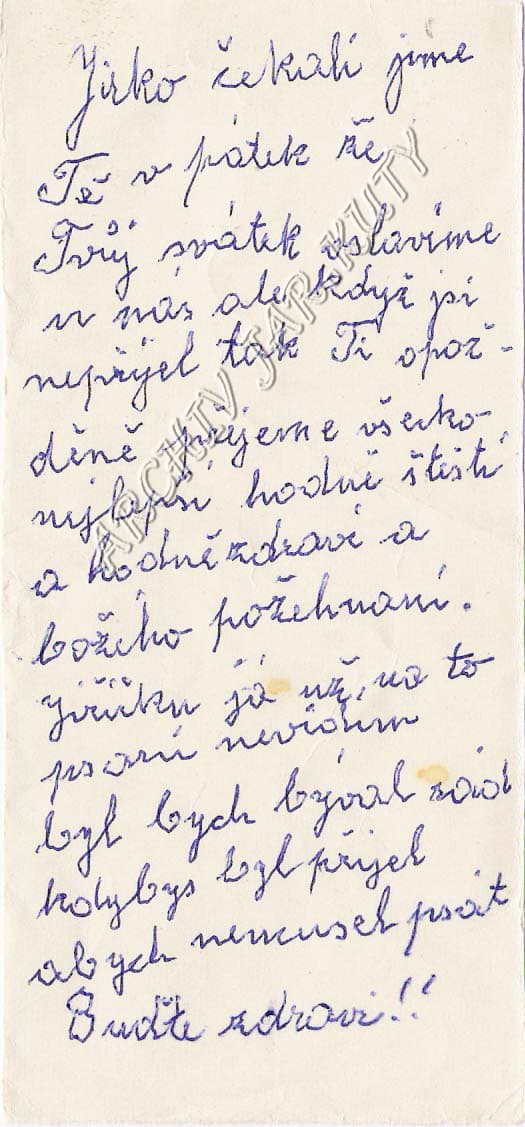 Jirko čekali jsme
Tě v pátek že
Tvůj svátek oslavíme
u nás ale když jsi
nepřijel tak Ti opož-
děně přejeme všecko
nejlepší hodně štěstí
a hodně zdraví a
božího požehnaní.
Jiříčku já už na to
psaní nevidim
byl bych býval rád
kdybys byl přijel
abych nemusel psát
Buďte zdraví!!
ARCHIV JAR.KUTY